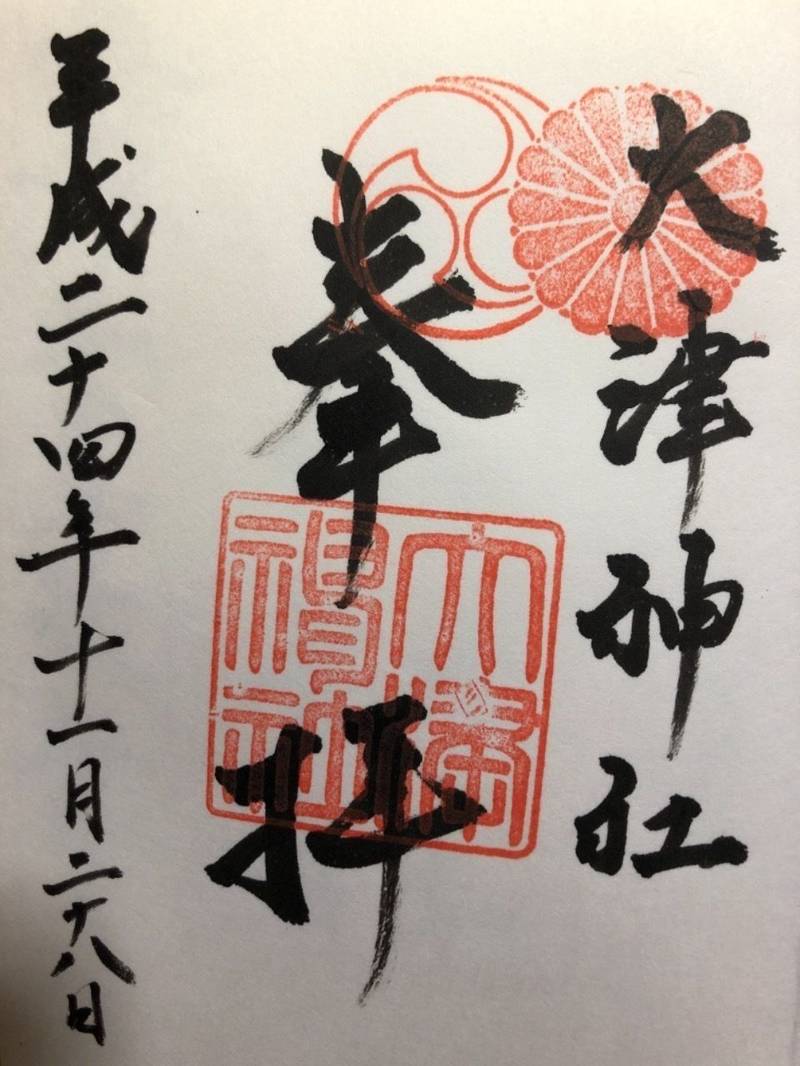 大津神社
奉拝
大津
神社
平成二十四年十一月二十八日